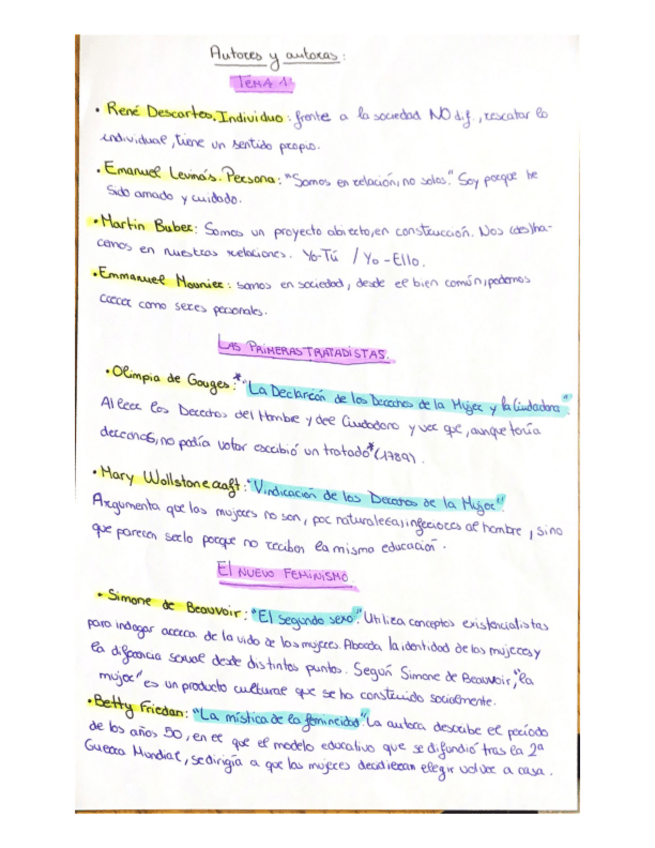 Autores y autoras:
TEMA 1:
• René Descartes. Individuo: frente a la sociedad NO dif., rescatar lo
individual, tiene un sentido propio.
• Emanuel Levinás. Persona: "Somos en relación, no solos." Soy porque he
sido amado y cuidado.
• Martin Buber: Somos un proyecto abierto, en construcción. Nos (des)ha-
cemos en nuestras relaciones. Yo-Tú / Yo-Ello.
• Emmanuel Mounier: somos en sociedad, desde el bien común, podemos
crecer como seres personales.
LAS PRIMERAS TRATADISTAS.
• Olimpia de Gouges:* "La Declareón de los Derechos de la Mujer y la Ciudadana"
Al leer los Derechos del Hombre y del Ciudadano y ver que, aunque tenía
derechos, no podía votar escribió un tratado* (1789).
• Mary Wollstonecraft: "Vindicación de los Derechos de la Mujer"
Argumenta que las mujeres no son, por naturaleza, inferiores al hombre, sino
que parecen serlo porque no reciben la misma educación.
El NUEVO FEMINISMO.
• Simone de Beauvoir: "El segundo sexo". Utiliza conceptos existencialistas
para indagar acerca de la vida de las mujeres. Aborda la identidad de las mujeres y
la diferencia sexual desde distintos puntos. Según Simone de Beauvoir, "la
mujer" es un producto cultural que se ha construido socialmente.
• Betty Friedan: "La mística de la feminidad" La autora describe el período
de los años 50, en el que el modelo educativo que se difundió tras la 2ª
Guerra Mundial, se dirigía a que las mujeres decidieran elegir volver a casa.